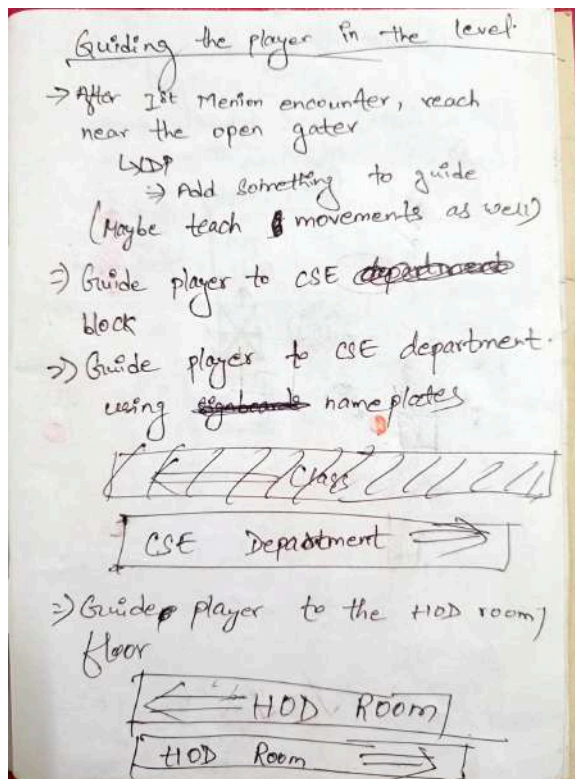 Guiding the player in the level.
→ After Ist Menion encounter, reach
near the open gater
⇒ Add something to guide
(Maybe teach movements as well)
⇒ Guide player to CSE department
block
⇒ Guide player to CSE department.
using signboards name plates
← Class
CSE Department ⇒
⇒ Guide player to the HOD room/
floor
⇐ HOD Room
HOD Room ⇒